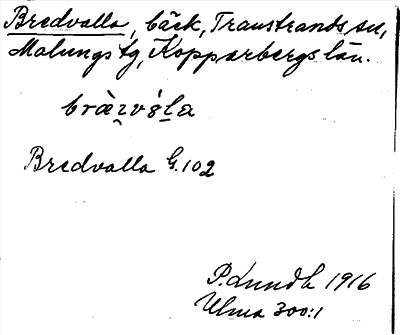 Bredvalla, bäck, Transtrands sn,
Malungs tg, Kopparbergs län.
Bredvalla G.102
P. Lundh 1916
Ulma 300:1